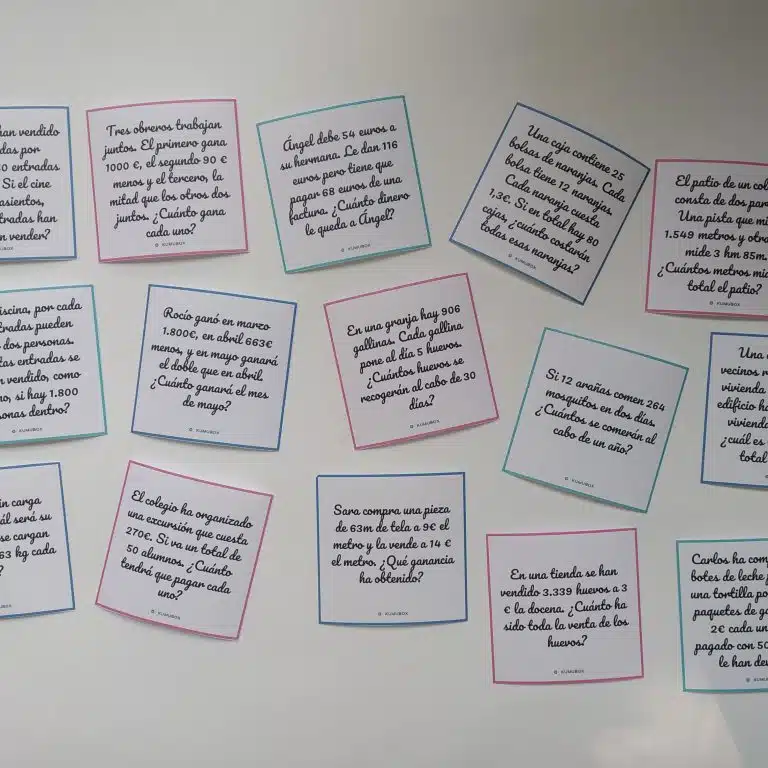 han vendido
das por
0 entradas
Si el cine
asientos,
tradas han
n vender?
Tres obreros trabajan
juntos. El primero gana
1000 €, el segundo 90 €
menos y el tercero, la
mitad que los otros dos
juntos. ¿Cuánto gana
cada uno?
KUMUBOX
Ángel debe 54 euros a
su hermana. Le dan 116
euros pero tiene que
pagar 68 euros de una
factura. ¿Cuánto dinero
le queda a Ángel?
KUMUBOX
Una caja contiene 25
bolsas de naranjas. Cada
bolsa tiene 12 naranjas.
Cada naranja cuesta
1,3€. Si en total hay 80
cajas, ¿cuánto costarán
todas esas naranjas?
KUMUBOX
El patio de un col
consta de dos par
Una pista que mi
1.549 metros y otro
mide 3 hm 85m.
¿Cuántos metros mid
total el patio?
KUMUBOX
iscina, por cada
tradas pueden
dos personas.
tas entradas se
n vendido, como
no, si hay 1.800
onas dentro?
Rocío ganó en marzo
1.800€, en abril 663€
menos, y en mayo ganará
el doble que en abril.
¿Cuánto ganará el mes
de mayo?
KUMUBOX
En una granja hay 906
gallinas. Cada gallina
pone al día 5 huevos.
¿Cuántos huevos se
recogerán al cabo de 30
días?
KUMUBOX
Si 12 arañas comen 264
mosquitos en dos días.
¿Cuántos se comerán al
cabo de un año?
KUMUBOX
Una
vecinos
vivienda
edificio ha
viviend
¿cuál es
total
in carga
ál será su
se cargan
63 kg cada
?
El colegio ha organizado
una excursión que cuesta
270€. Si va un total de
50 alumnos. ¿Cuánto
tendrá que pagar cada
uno?
KUMUBOX
Sara compra una pieza
de 63m de tela a 9€ el
metro y la vende a 14 €
el metro. ¿Qué ganancia
ha obtenido?
KUMUBOX
En una tienda se han
vendido 3.339 huevos a 3
€ la docena. ¿Cuánto ha
sido toda la venta de los
huevos?
KUMUBOX
Carlos ha com
botes de leche
una tortilla po
paquetes de ga
2€ cada un
pagado con 50
le han dev